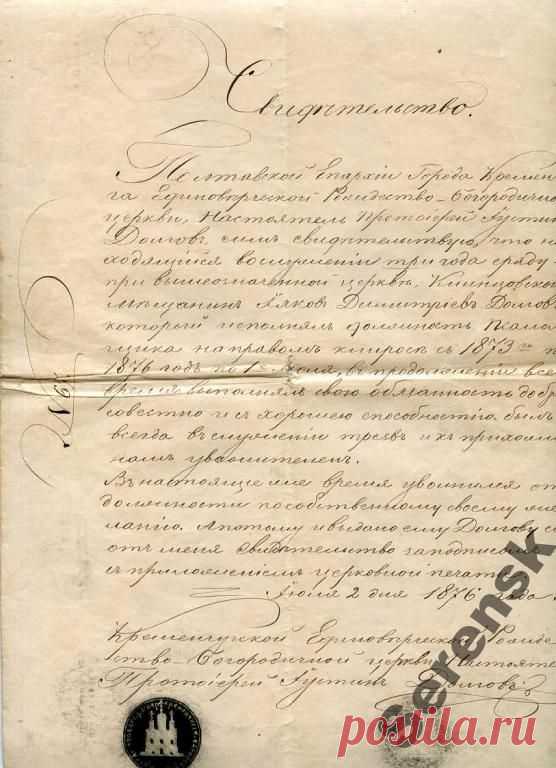 Свидѣтельство.
Полтавской Епархіи Города Кремен
га Единовѣрческой Рождество-Богородично
церкви, Настоятель Протоіерей Іустин
Долговъ симъ свидѣтельствую, что на
ходящійся вослуженіи три года сряду
при вышеозначенной церквѣ, Клинцовской
мѣщанинъ Іяковъ Димитріевъ Долгов
который исполнялъ должность Псалом
щика направомъ клиросѣ съ 1873го п
1876 годъ по 1е Іюля, въ продолженіи все
время выполнялъ свою обязанность добр
совестно и съ хорошею способностію. былъ
всегда въ служеніи трезвъ и къ прихожа
намъ уважителенъ.
Въ настоящее же время уволился от
должности пособственному своему же
ланію. Апотому и выдано ему Долгову с
отъ меня Свидѣтельство заподписью
съ приложеніемъ церковной печати
Іюля 2 дня 1876 года
Кременчугской Единовѣрческой Рожде
ство-Богородичной церкви Настояте
Протоіерей Іустинъ Долговъ
№
Gerensk
postila.ru